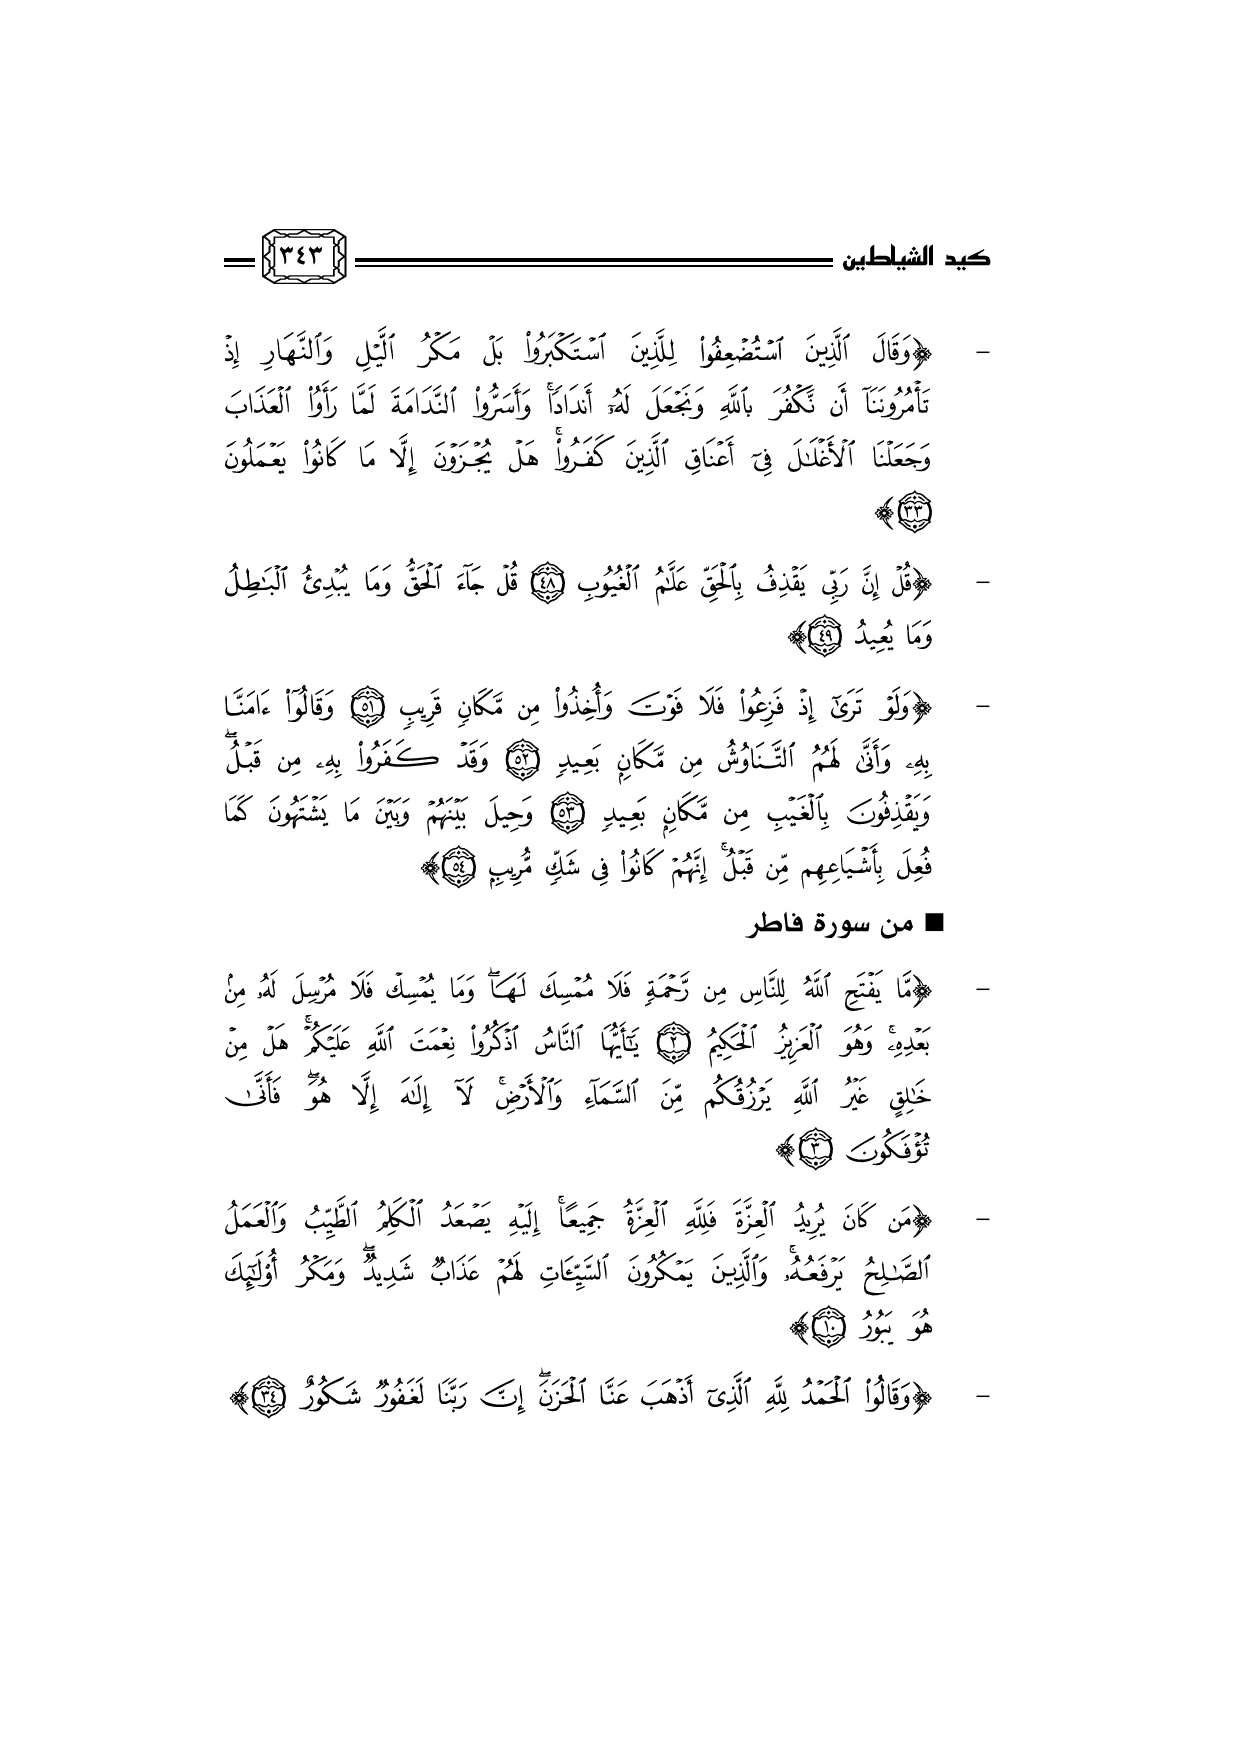 كيد الشياطين ٣٤٣
– ﴿وَقَالَ ٱلَّذِينَ ٱسۡتُضۡعِفُواْ لِلَّذِينَ ٱسۡتَكۡبَرُواْ بَلۡ مَكۡرُ ٱلَّيۡلِ وَٱلنَّهَارِ إِذۡ
تَأۡمُرُونَنَآ أَن نَّكۡفُرَ بِٱللَّهِ وَنَجۡعَلَ لَهُۥٓ أَندَادٗاۚ وَأَسَرُّواْ ٱلنَّدَامَةَ لَمَّا رَأَوُاْ ٱلۡعَذَابَ
وَجَعَلۡنَا ٱلۡأَغۡلَٰلَ فِيٓ أَعۡنَاقِ ٱلَّذِينَ كَفَرُواْۚ هَلۡ يُجۡزَوۡنَ إِلَّا مَا كَانُواْ يَعۡمَلُونَ
٣٣﴾
– ﴿قُلۡ إِنَّ رَبِّي يَقۡذِفُ بِٱلۡحَقِّ عَلَّٰمُ ٱلۡغُيُوبِ ٤٨ قُلۡ جَآءَ ٱلۡحَقُّ وَمَا يُبۡدِئُ ٱلۡبَٰطِلُ
وَمَا يُعِيدُ ٤٩﴾
– ﴿وَلَوۡ تَرَىٰٓ إِذۡ فَزِعُواْ فَلَا فَوۡتَ وَأُخِذُواْ مِن مَّكَانٖ قَرِيبٖ ٥١ وَقَالُوٓاْ ءَامَنَّا
بِهِۦ وَأَنَّىٰ لَهُمُ ٱلتَّنَاوُشُ مِن مَّكَانِۭ بَعِيدٖ ٥٢ وَقَدۡ كَفَرُواْ بِهِۦ مِن قَبۡلُۖ
وَيَقۡذِفُونَ بِٱلۡغَيۡبِ مِن مَّكَانِۭ بَعِيدٖ ٥٣ وَحِيلَ بَيۡنَهُمۡ وَبَيۡنَ مَا يَشۡتَهُونَ كَمَا
فُعِلَ بِأَشۡيَاعِهِم مِّن قَبۡلُۚ إِنَّهُمۡ كَانُواْ فِي شَكّٖ مُّرِيبِۭ ٥٤﴾
■ من سورة فاطر
– ﴿مَّا يَفۡتَحِ ٱللَّهُ لِلنَّاسِ مِن رَّحۡمَةٖ فَلَا مُمۡسِكَ لَهَاۖ وَمَا يُمۡسِكۡ فَلَا مُرۡسِلَ لَهُۥ مِنۢ
بَعۡدِهِۦۚ وَهُوَ ٱلۡعَزِيزُ ٱلۡحَكِيمُ ٢ يَٰٓأَيُّهَا ٱلنَّاسُ ٱذۡكُرُواْ نِعۡمَتَ ٱللَّهِ عَلَيۡكُمۡۚ هَلۡ مِنۡ
خَٰلِقٍ غَيۡرُ ٱللَّهِ يَرۡزُقُكُم مِّنَ ٱلسَّمَآءِ وَٱلۡأَرۡضِۚ لَآ إِلَٰهَ إِلَّا هُوَۖ فَأَنَّىٰ
تُؤۡفَكُونَ ٣﴾
– ﴿مَن كَانَ يُرِيدُ ٱلۡعِزَّةَ فَلِلَّهِ ٱلۡعِزَّةُ جَمِيعًاۚ إِلَيۡهِ يَصۡعَدُ ٱلۡكَلِمُ ٱلطَّيِّبُ وَٱلۡعَمَلُ
ٱلصَّٰلِحُ يَرۡفَعُهُۥۚ وَٱلَّذِينَ يَمۡكُرُونَ ٱلسَّيِّـَٔاتِ لَهُمۡ عَذَابٞ شَدِيدٞۖ وَمَكۡرُ أُوْلَٰٓئِكَ
هُوَ يَبُورُ ١٠﴾
– ﴿وَقَالُواْ ٱلۡحَمۡدُ لِلَّهِ ٱلَّذِيٓ أَذۡهَبَ عَنَّا ٱلۡحَزَنَۖ إِنَّ رَبَّنَا لَغَفُورٞ شَكُورٌ ٣٤﴾